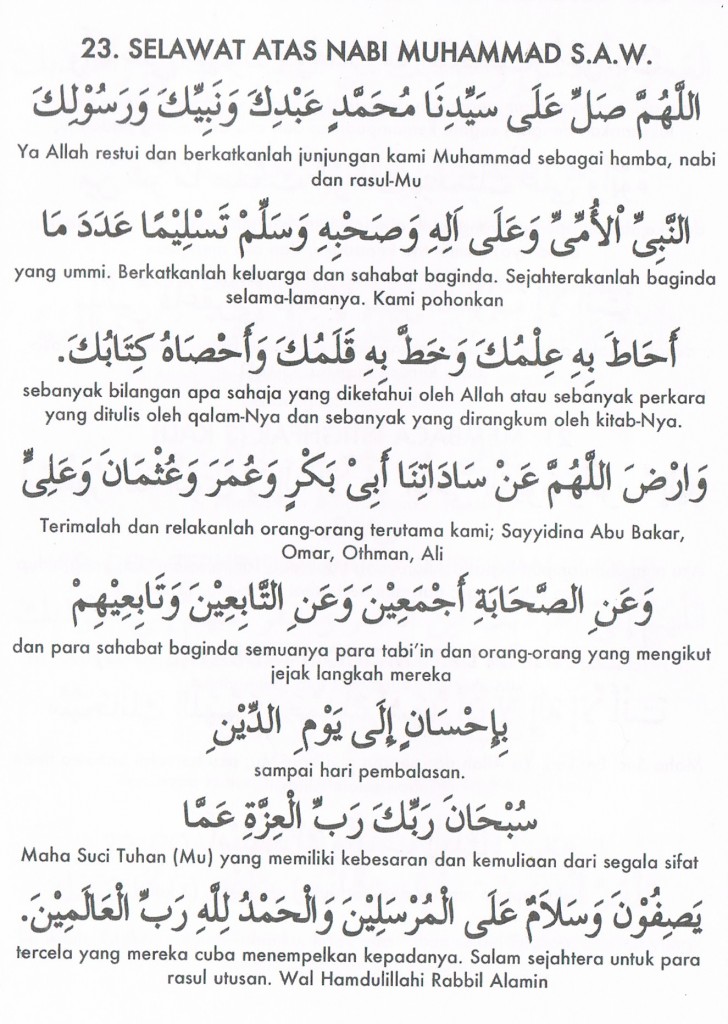 23. SELAWAT ATAS NABI MUHAMMAD S.A.W.
اَللَّهُمَّ صَلِّ عَلَى سَيِّدِنَا مُحَمَّدٍ عَبْدِكَ وَنَبِيِّكَ وَرَسُوْلِكَ
Ya Allah restui dan berkatkanlah junjungan kami Muhammad sebagai hamba, nabi
dan rasul-Mu
النَّبِيِّ الْأُمِّيِّ وَعَلَى آلِهِ وَصَحْبِهِ وَسَلِّمْ تَسْلِيْمًا عَدَدَ مَا
yang ummi. Berkatkanlah keluarga dan sahabat baginda. Sejahterakanlah baginda
selama-lamanya. Kami pohonkan
أَحَاطَ بِهِ عِلْمُكَ وَخَطَّ بِهِ قَلَمُكَ وَأَحْصَاهُ كِتَابُكَ.
sebanyak bilangan apa sahaja yang diketahui oleh Allah atau sebanyak perkara
yang ditulis oleh qalam-Nya dan sebanyak yang dirangkum oleh kitab-Nya.
وَارْضَ اللَّهُمَّ عَنْ سَادَاتِنَا أَبِيْ بَكْرٍ وَعُمَرَ وَعُثْمَانَ وَعَلِيٍّ
Terimalah dan relakanlah orang-orang terutama kami; Sayyidina Abu Bakar,
Omar, Othman, Ali
وَعَنِ الصَّحَابَةِ أَجْمَعِيْنَ وَعَنِ التَّابِعِيْنَ وَتَابِعِيْهِمْ
dan para sahabat baginda semuanya para tabi'in dan orang-orang yang mengikut
jejak langkah mereka
بِإِحْسَانٍ إِلَى يَوْمِ الدِّيْنِ
sampai hari pembalasan.
سُبْحَانَ رَبِّكَ رَبِّ الْعِزَّةِ عَمَّا
Maha Suci Tuhan (Mu) yang memiliki kebesaran dan kemuliaan dari segala sifat
يَصِفُوْنَ وَسَلَامٌ عَلَى الْمُرْسَلِيْنَ وَالْحَمْدُ لِلَّهِ رَبِّ الْعَالَمِيْنَ.
tercela yang mereka cuba menempelkan kepadanya. Salam sejahtera untuk para
rasul utusan. Wal Hamdulillahi Rabbil Alamin